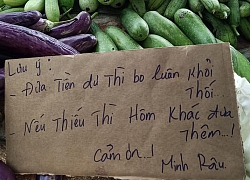 Lưu ý:
- Đưa Tiền dư Thì bo luôn khỏi
Thối..
- Nếu Thiếu Thì Hôm Khác đưa
Thêm...!
Cảm ơn...!
Minh Râu.